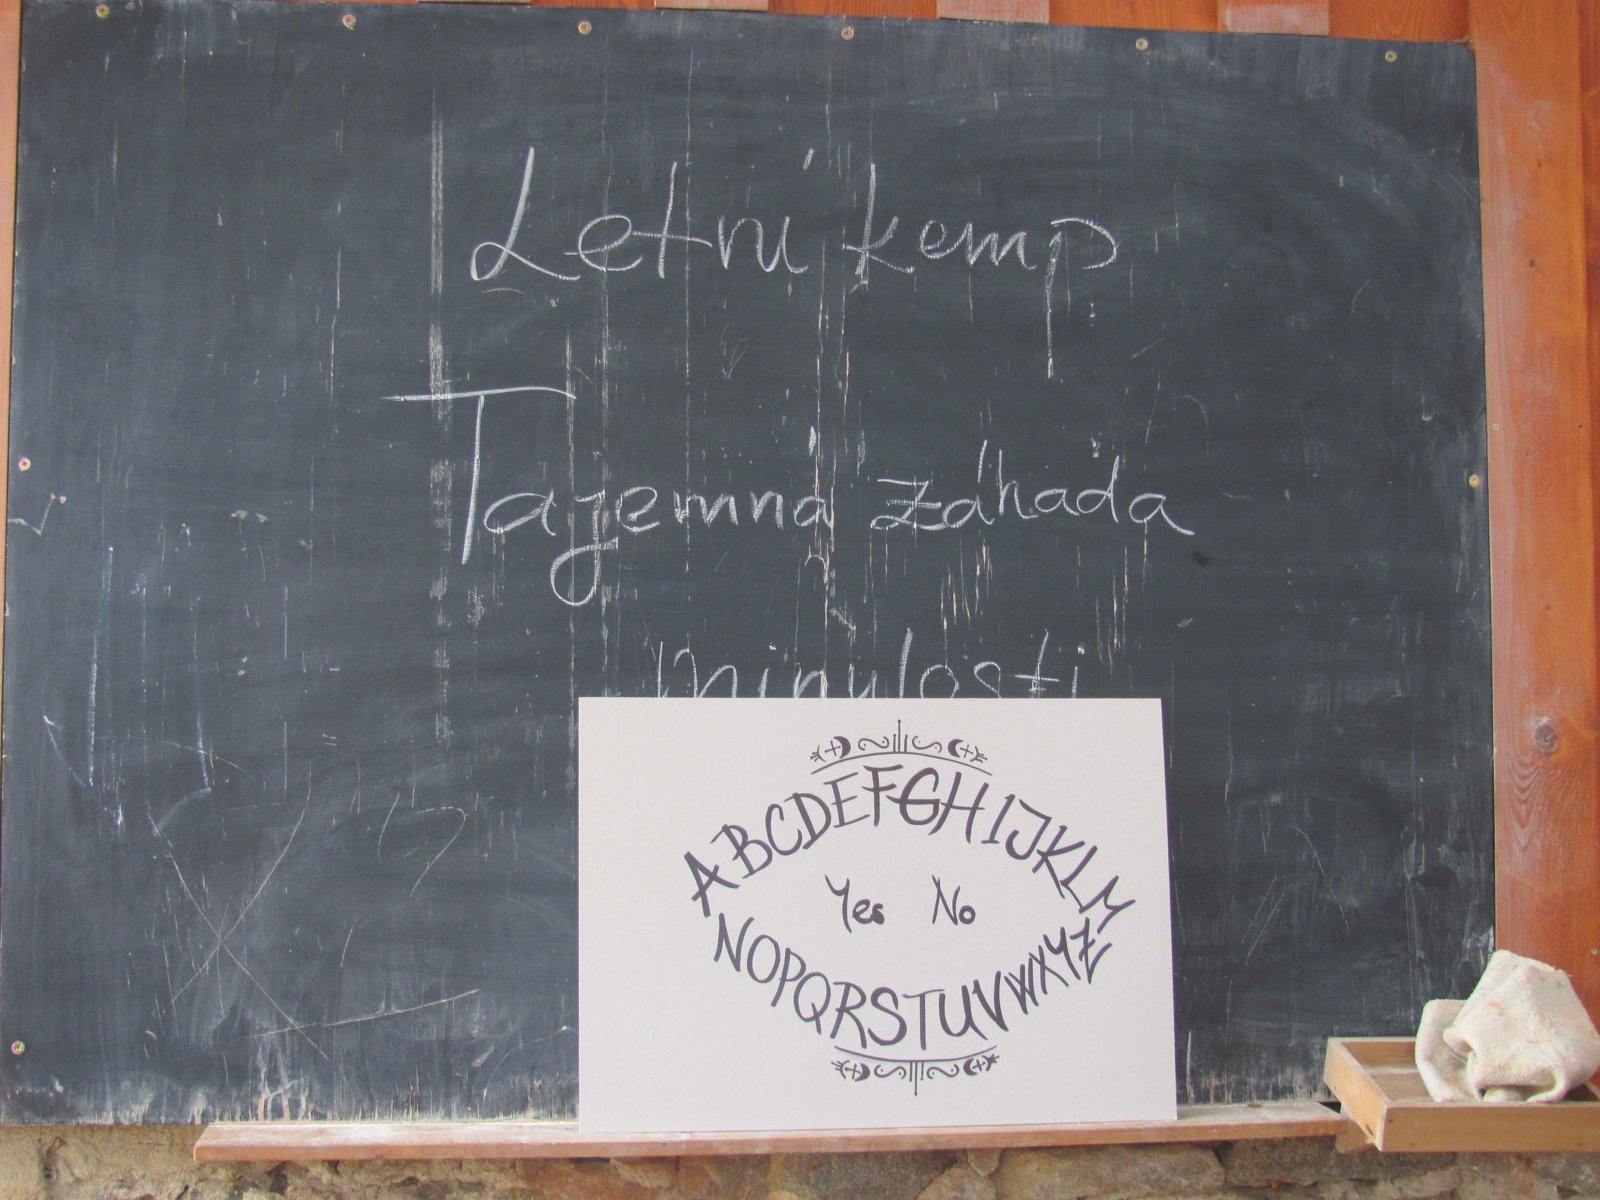 Letní kemp
Tajemná záhada
minulosti
ABCDEFGHIJKLM
Yes No
NOPQRSTUVWXYZ